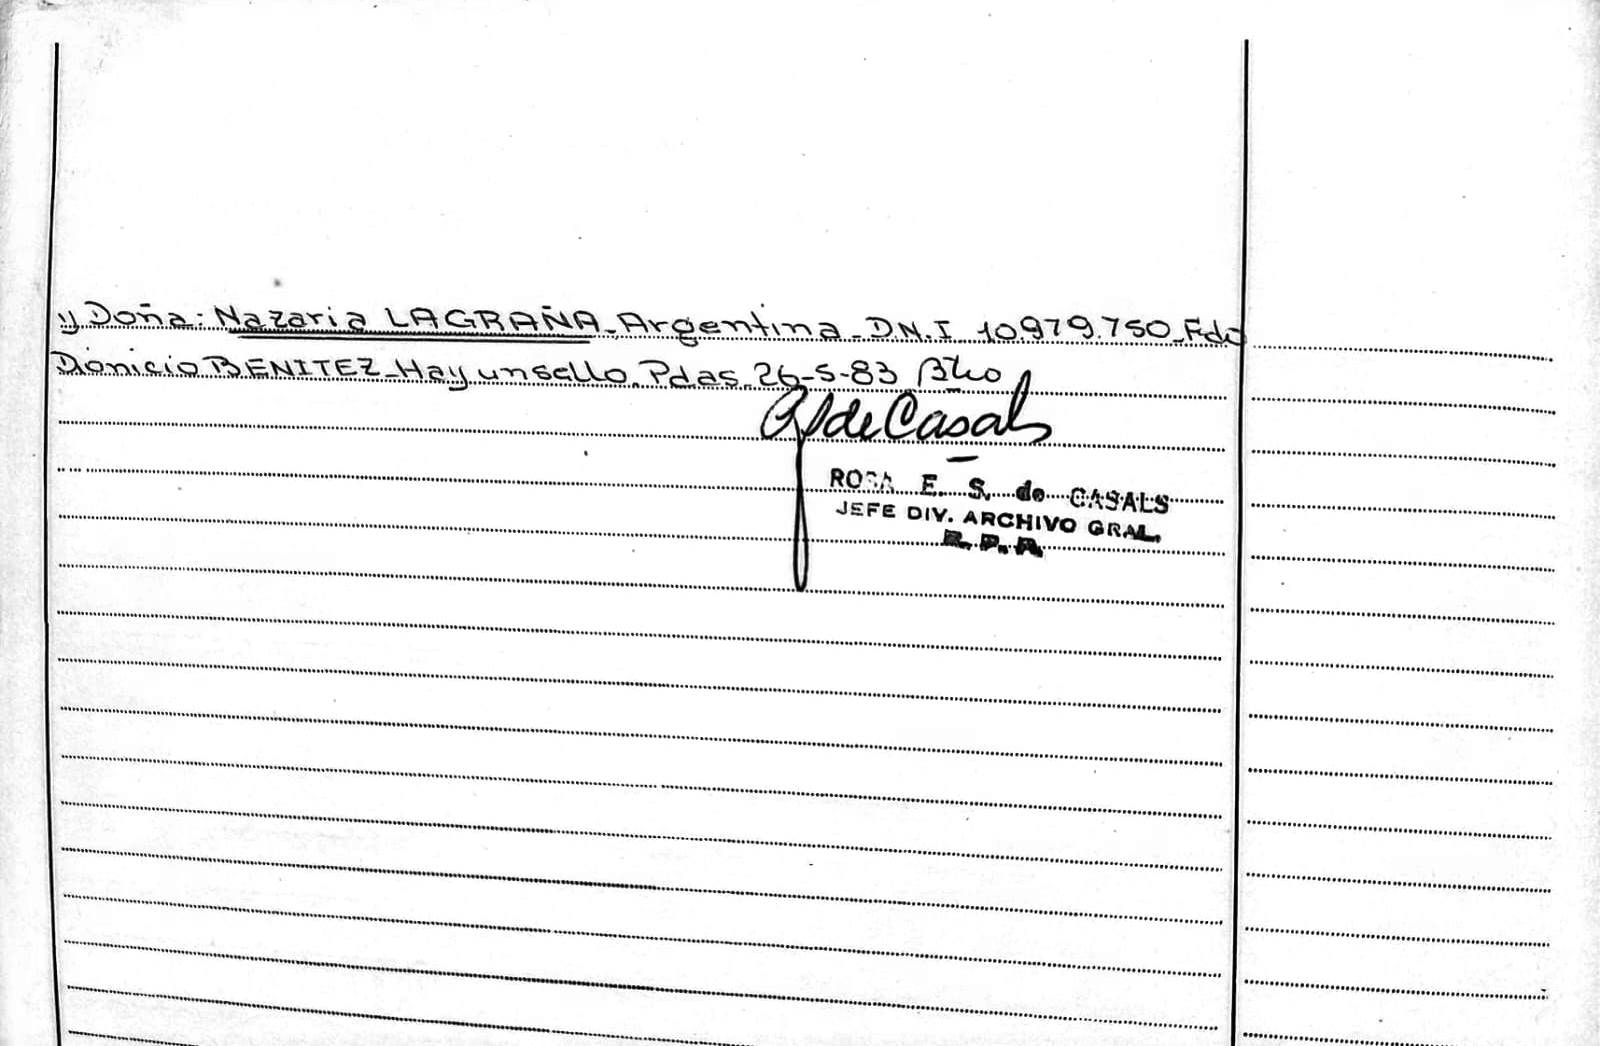 y Doña: Nazaria LAGRAÑA_Argentina_D.N.I_10.979.750_Fdo
Dionicio BENITEZ_Hay un sello. Pdas. 26-5-83
de Casals
ROSA E. S. de CASALS
JEFE DIV. ARCHIVO GRAL.
R. P. P.